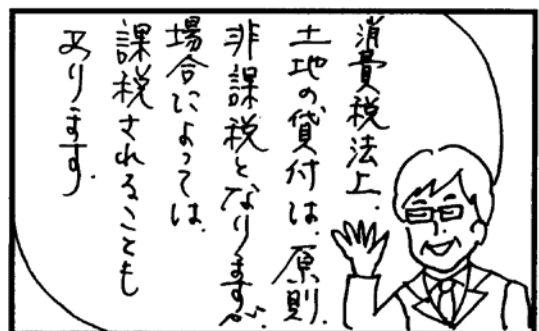 消費税法上、
土地の貸付は、原則、
非課税となりますが、
場合によっては、
課税されることも
あります。